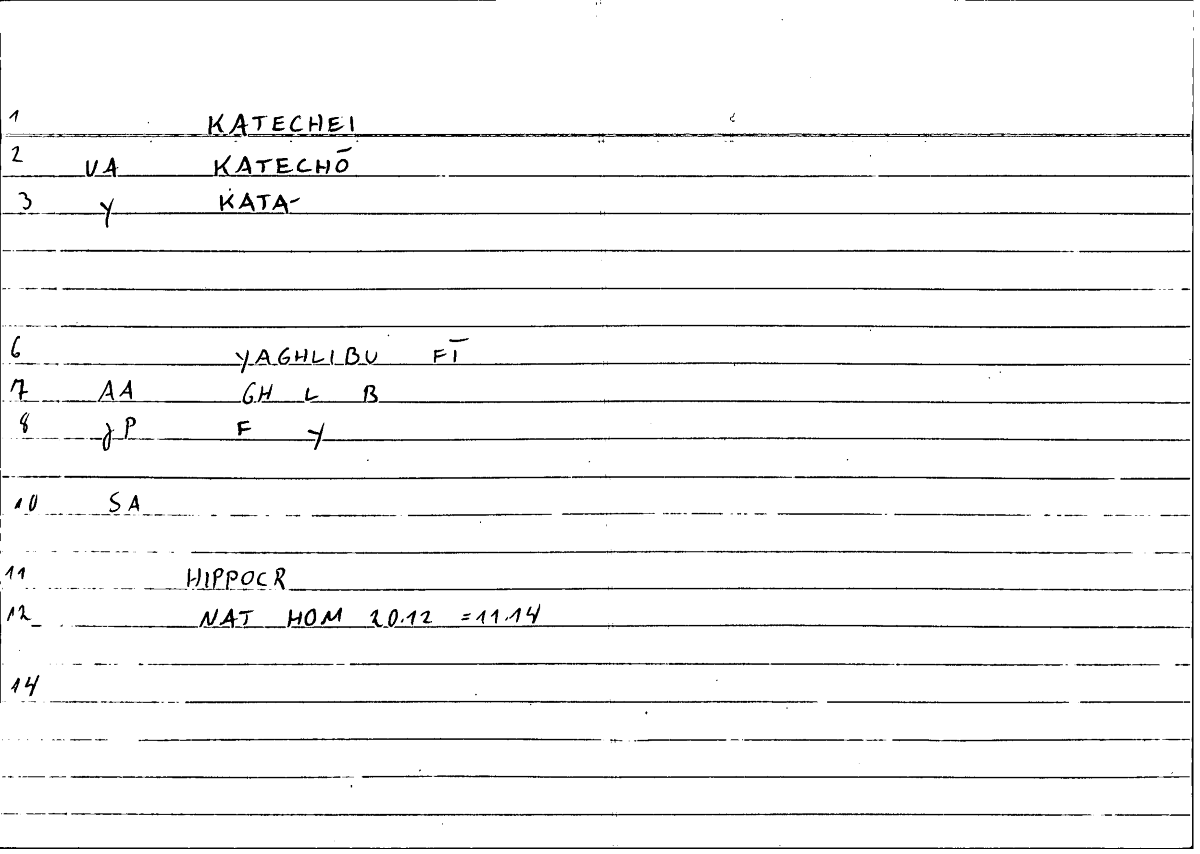 1 KATECHEI
2 VA KATECHŌ
3 Y KATA-
6 YAGHLIBU FĪ
7 AA GH L B
8 P F Y
10 SA
11 HIPPOCR
12 NAT HOM 20.12 =11.14
14